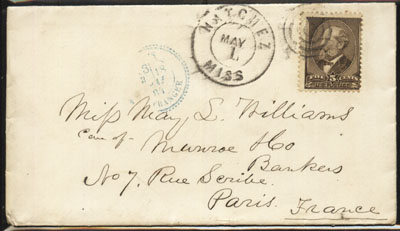 NATCHEZ
MAY
1
MISS
ETRANGER
5
Miss May L. Williams
Care of Munroe & Co
Bankers
No 7, Rue Scribe.
Paris.
France